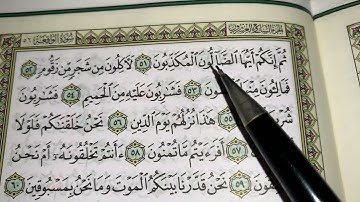 سورة الواقعة
ثم إنكم أيها الضالون المكذبون ٥١ لآكلون من شجر من زقوم ٥٢
فمالئون منها ٥٣ فشاربون عليه من الحميم ٥٤ فشاربون
٥٥ هذا نزلهم يوم الدين ٥٦ نحن خلقناكم فلولا
٥٧ أفرءيتم ما تمنون ٥٨ ءأنتم تخلقونه أم نحن
٥٩ نحن قدرنا بينكم الموت وما نحن بمسبوقين ٦٠